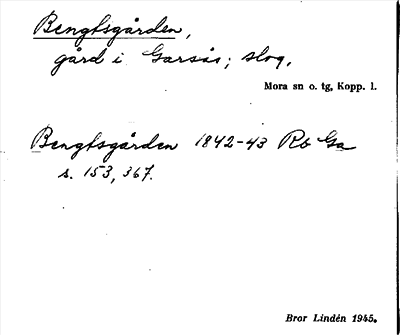 Bengtsgården,
gård i Garsås; slog.
Mora sn o. tg, Kopp. l.
Bengtsgården 1842-43 Rb Ga
s. 153, 367.
Bror Lindén 1945.